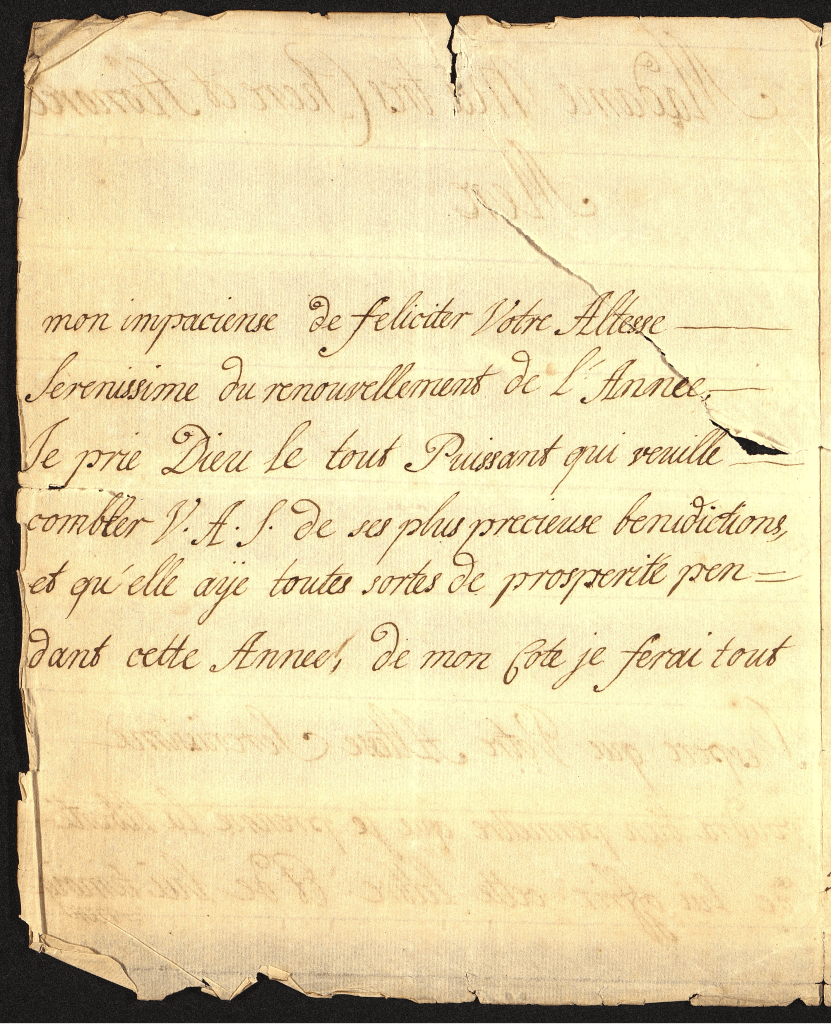 mon impaciense de feliciter Votre Altesse
Serenissime du renouvellement de l'Annee,
Je prie Dieu le tout Puissant qui veuille
combler V. A. S. de ses plus precieuse benidictions,
et qu'elle aÿe toutes sortes de prosperité pen=
dant cette Annee, de mon Cote je ferai tout